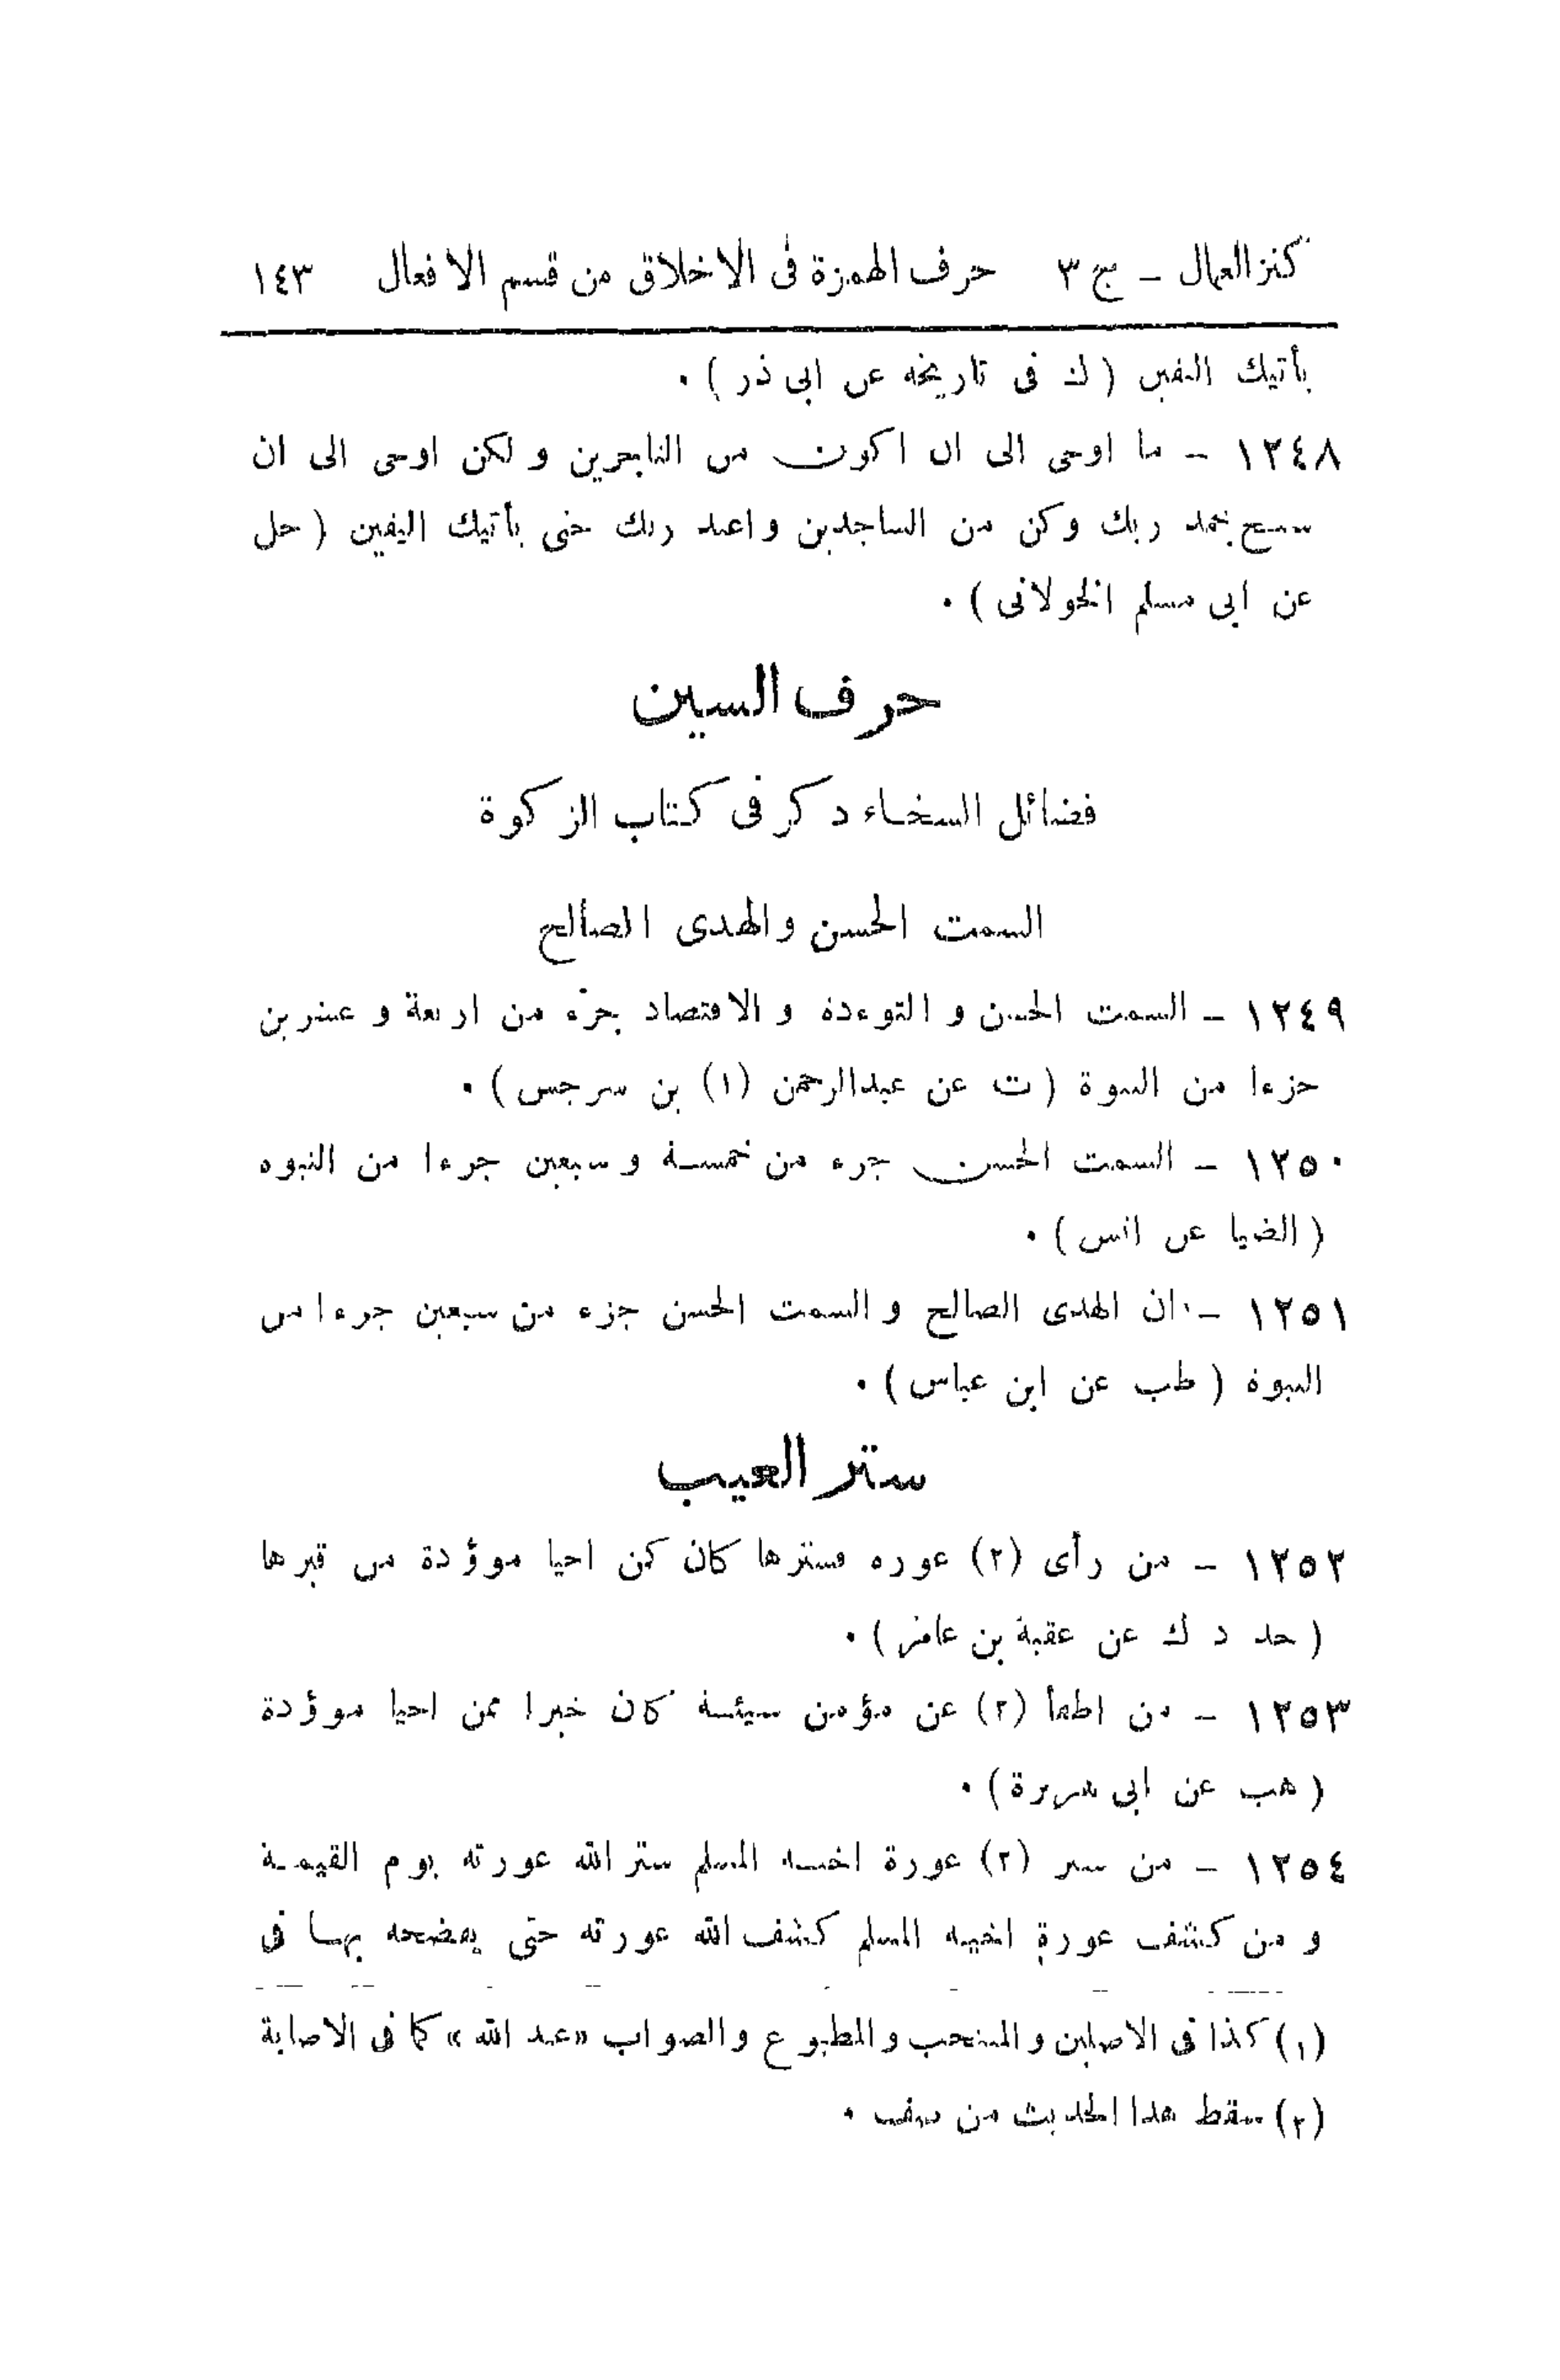 كنز العمال – ج ٣ حرف الهمزة فى الاخلاق من قسم الافعال ١٤٣
يأتيك اليقين ( ك فى تاريخه عن ابى ذر ) ٠
١٢٤٨ – ما اوحى الى ان اكون من التاجرين و لكن اوحى الى ان
سبح بحمد ربك وكن من الساجدين واعبد ربك حتى يأتيك اليقين ( حل
عن ابى مسلم الخولانى ) ٠
حرف السين
فضائل السخاء ذكر فى كتاب الزكوة
السمت الحسن والهدى الصالح
١٢٤٩ – السمت الحسن و التوءدة و الاقتصاد جزء من اربعة و عشرين
جزءا من النبوة ( ت عن عبدالرحمن (١) بن سرجس ) ٠
١٢٥٠ – السمت الحسن جزء من خمسة و سبعين جزءا من النبوة
( الضيا عن انس ) ٠
١٢٥١ – ان الهدى الصالح و السمت الحسن جزء من سبعين جزءا من
النبوة ( طب عن ابن عباس ) ٠
ستر العيب
١٢٥٢ – من رأى (٢) عورة فسترها كان كمن احيا موؤدة من قبرها
( خد د ك عن عقبة بن عامر ) ٠
١٢٥٣ – من اطفأ (٢) عن مؤمن سيئة كان خيرا ممن احيا موؤدة
( هب عن ابى هريرة ) ٠
١٢٥٤ – من ستر (٢) عورة اخيه المسلم ستر الله عورته يوم القيمة
و من كشف عورة اخيه المسلم كشف الله عورته حتى يفضحه بها فى
(١) كذا فى الاصلين و المنتخب و المطبوع و الصواب «عبد الله» كما فى الاصابة
(٢) سقط هذا الحديث من